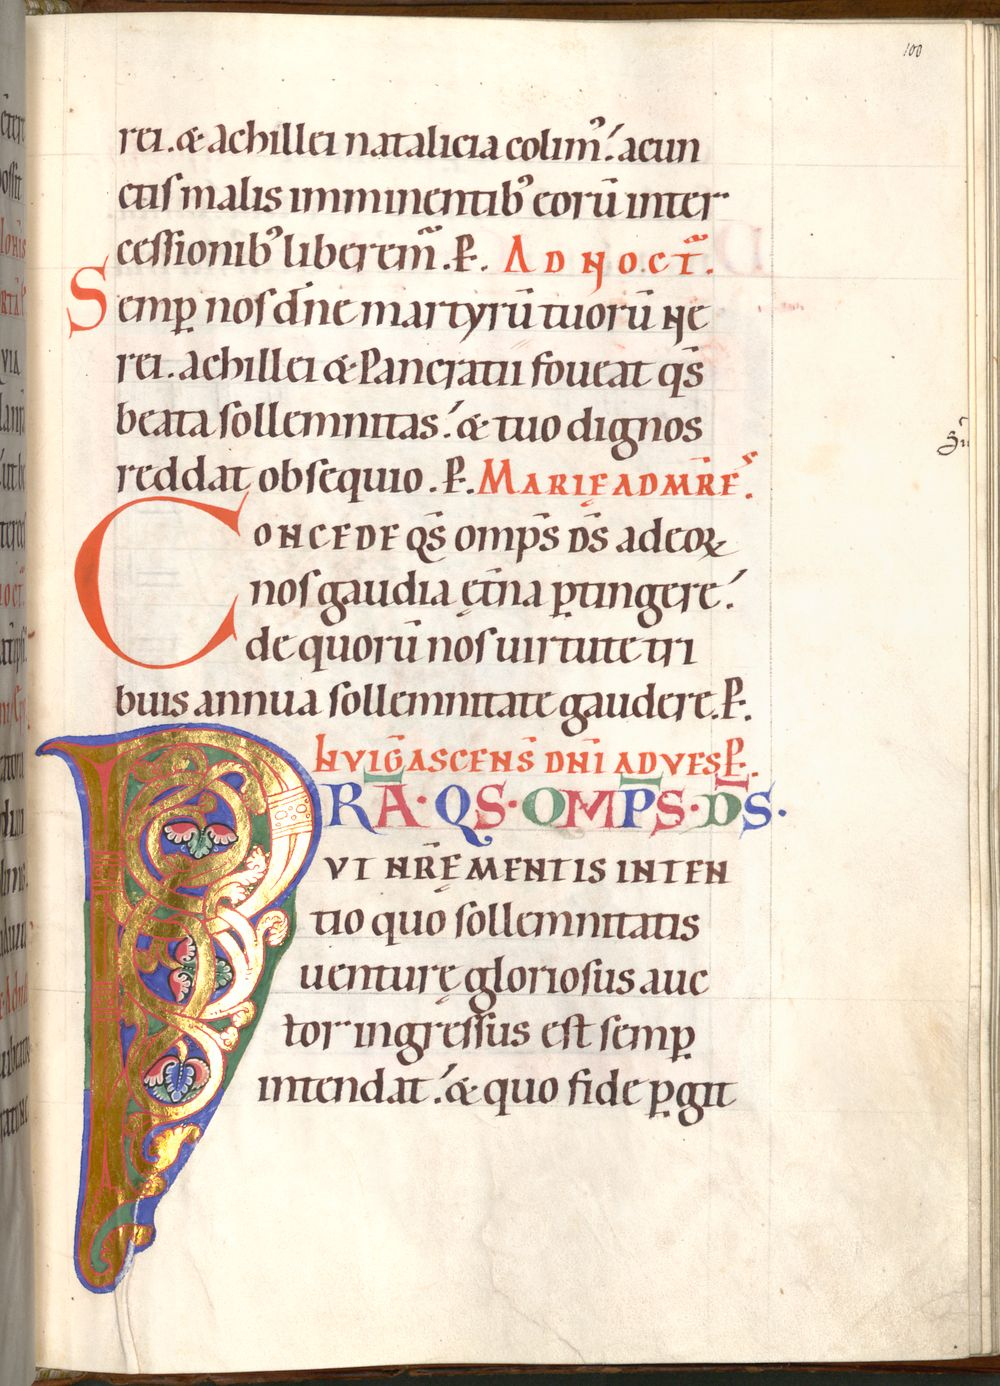 100
rei. & achillei natalicia colim᷒. a cun
ctis malis imminentib᷒ eorū inter
cessionib᷒ liberem̄. P̱. AD NOCT̄.
Semp̱ nos dn̄e martyrū tuorū Ne
rei. achillei & Pancratii foueat qs̄
beata sollemnitas. & tuo dignos
reddat obsequio. P̱. MARIĘ AD MR̄ES.
CONCEDE QS̄ omp̄s DS̄ ad eoꝝ
nos gaudia ęt̄na p̱tingere.
de quorū nos uirtute tri
buis annua sollemnitate gaudere. P̱.
IN VIḠ ASCENS̄ DN̄I AD VESP̱.
PRĀ · QS · OMP̄S · D̄S ·
VT NR̄Ę MENTIS INTEN
tio quo sollemnitatis
uenturę gloriosus auc
tor ingressus est semp̱
intendat. & quo fide p̱git